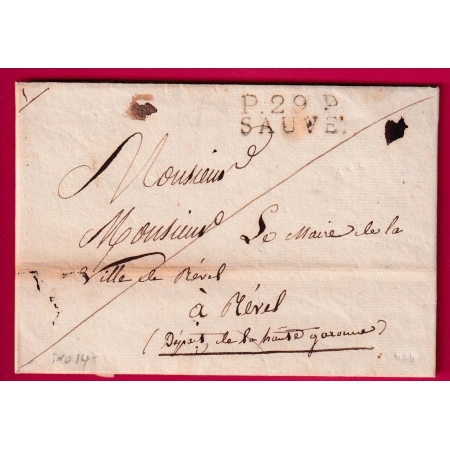 P. 29 P.
SAUVE.
Monsieur
Monsieur Le Maire de la
Ville de Révél
à Révél
(Départ. de la haute garonne)